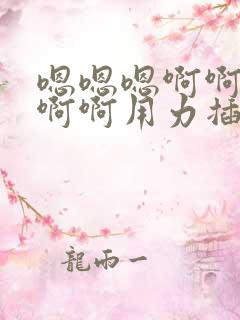 嗯嗯嗯啊啊
啊啊用力插
龍雨一